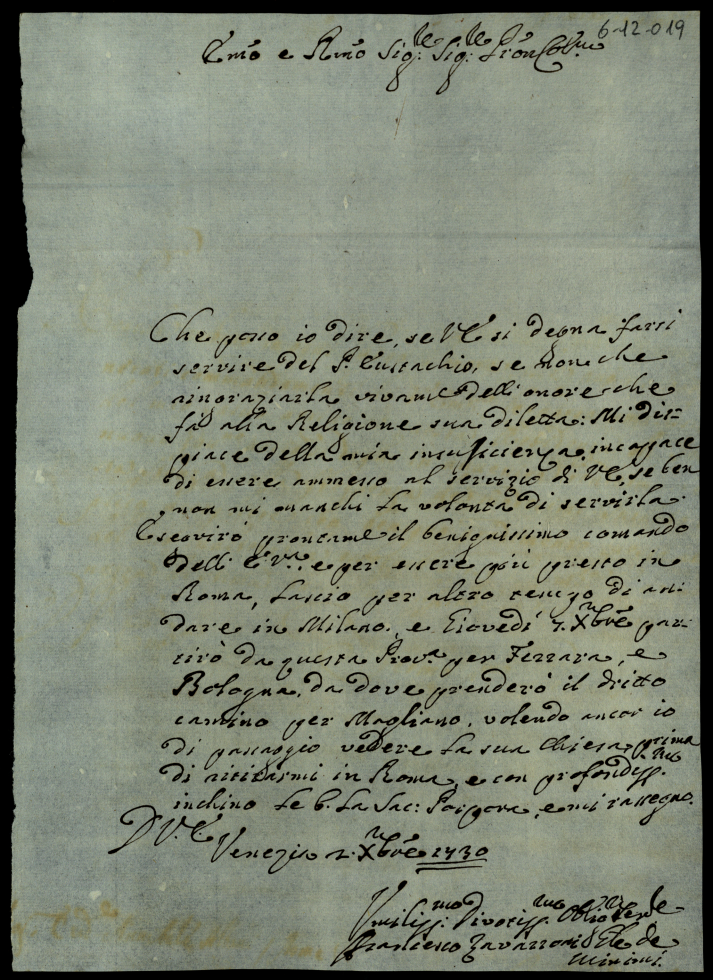 6-12-019
Emõ e Rmõ Sig.re Sig.re Pron Col.mo
Che posso io dire, se VE si degna farsi
servire del P. Eustachio, se non che
ringraziarla vivam.e dell'onore che
fà alla Religione sua diletta: Mi dis=
piace della mia insuficienza, incapace
di essere ammesso al servizio di VE, se ben
non mi manchi la volontà di servirla.
Eseguirò prontam.e il benignissimo comando
dell'E.V.ra, e per essere più presto in
Roma, lascio per altro tempo di an=
dare in Milano, e Giovedì 7. Xbre par=
tirò da questa Prov.a per Ferrara, e
Bologna, da dove prenderò il dritto
camino per Magliano, volendo ancor io
di passaggio vedere la sua Chiesa prima
di ritirarmi in Roma, e con profondiss.mo
inchino le b. la Sac: Porpora, e mi rassegno.
D V.E.
Venezia 2. Xbre 1730
Umiliss.mo Divotiss.mo Obblig.mo Serde
Francesco Zavarroni Gle de
Minimi.